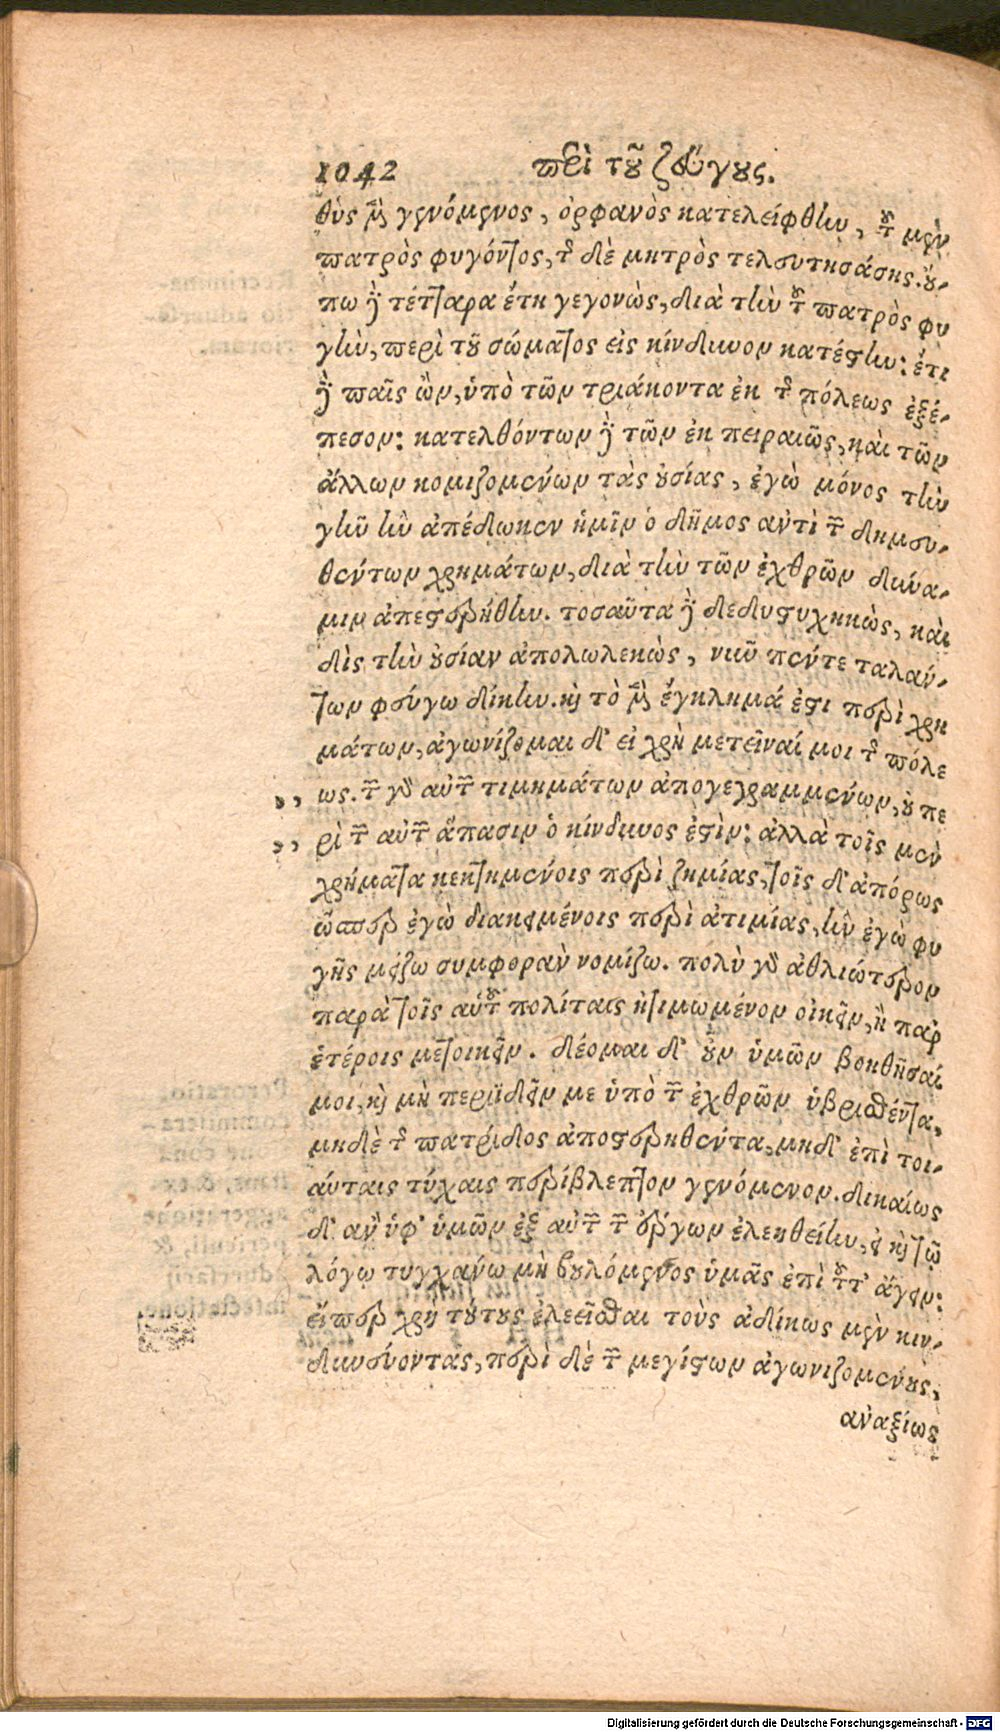 1042 περὶ τοῦ ζεύγους.
θὺς μὲν γενόμενος, ὀρφανὸς κατελείφθην, τοῦ μὲν
πατρὸς φυγόντος, τῆς δὲ μητρὸς τελευτησάσης. οὔ-
πω δὲ τέτταρα ἔτη γεγονὼς, διὰ τὴν τοῦ πατρὸς φυ
γὴν, περὶ τοῦ σώματος εἰς κίνδυνον κατέστην: ἔτι
δὲ παῖς ὢν, ὑπὸ τῶν τριάκοντα ἐκ τῆς πόλεως ἐξέ-
πεσον: κατελθόντων δὲ τῶν ἐκ πειραιῶς, καὶ τῶν
ἄλλων κομιζομένων τὰς οὐσίας, ἐγὼ μόνος τὴν
γῆν ἣν ἀπέδωκεν ἡμῖν ὁ δῆμος ἀντὶ τῶν δημευ-
θέντων χρημάτων, διὰ τὴν τῶν ἐχθρῶν δύνα-
μιν ἀπεστερήθην. τοσαῦτα δὲ δεδυστυχηκὼς, καὶ
δὶς τὴν οὐσίαν ἀπολωλεκὼς, νυνῦ πέντε ταλάν-
των φεύγω δίκην. καὶ τὸ μὲν ἔγκλημά ἐστι περὶ χρη
μάτων, ἀγωνίζομαι δ' εἰ χρὴ μετεῖναί μοι τῆς πόλε
ως. τῶν γὰρ αὐτῶν τιμημάτων ἀπογεγραμμένων, οὐ πε
ρὶ τῶν αὐτῶν ἅπασιν ὁ κίνδυνος ἐστὶν: ἀλλὰ τοῖς μὲν
χρήματα κεκτημένοις περὶ ζημίας, τοῖς δ' ἀπόρως
ὥσπερ ἐγὼ διακειμένοις περὶ ἀτιμίας, ἣν ἐγὼ φυ
γῆς μείζω συμφορὰν νομίζω. πολὺ γὰρ ἀθλιώτερον
παρὰ τοῖς αὑτοῦ πολίταις ἠτιμωμένον οἰκεῖν, ἢ παρ
ἑτέροις μετοικεῖν. δέομαι δ' οὖν ὑμῶν βοηθῆσαί
μοι, καὶ μὴ περιϊδεῖν με ὑπὸ τῶν ἐχθρῶν ὑβρισθέντα,
μηδὲ τῆς πατρίδος ἀποστερηθέντα, μηδ' ἐπὶ τοι-
αύταις τύχαις περίβλεπτον γενόμενον. δικαίως
δ' ἂν ὑφ' ὑμῶν ἐξ αὐτῶν τῶν ἔργων ἐλεηθείην, εἰ καὶ τῷ
λόγῳ τυγχάνω μὴ βουλόμενος ὑμᾶς ἐπὶ τοῦτ' ἄγειν:
εἴπερ χρὴ τούτους ἐλεεῖσθαι τοὺς ἀδίκως μὲν κιν-
δυνεύοντας, περὶ δὲ τῶν μεγίστων ἀγωνιζομένους,
ἀναξίως
Digitalisierung gefördert durch die Deutsche Forschungsgemeinschaft - DFG